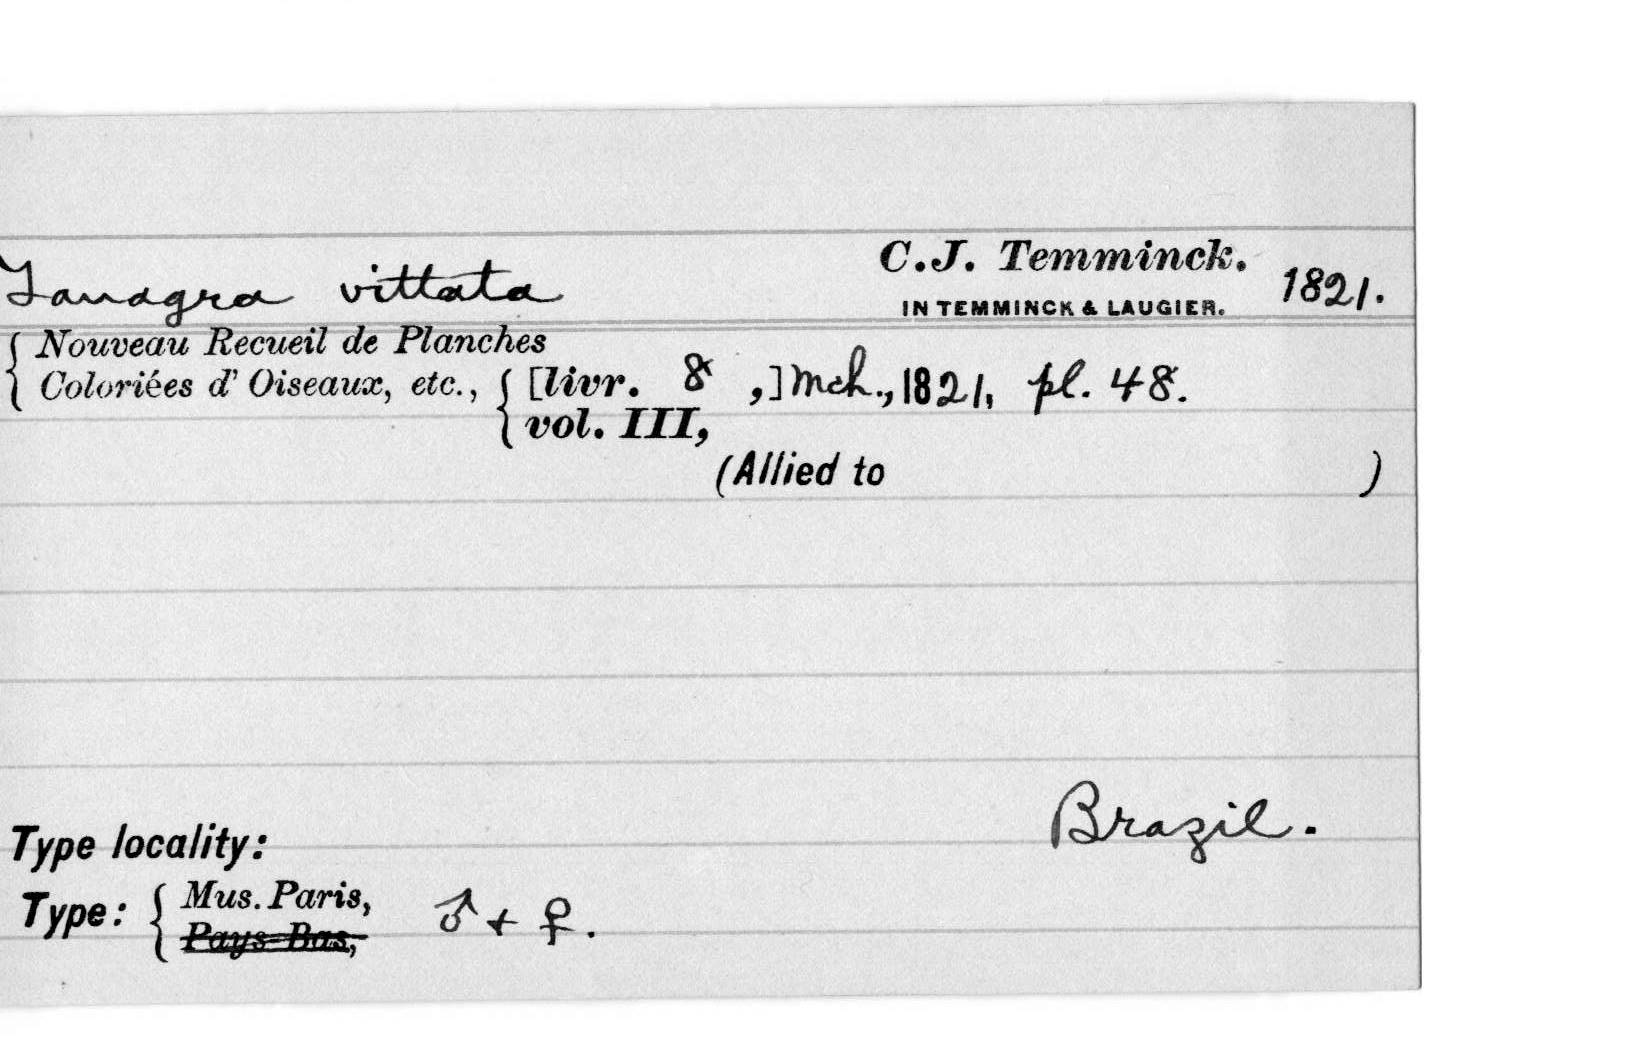 Tanagra vittata C.J. Temminck. 1821.
IN TEMMINCK & LAUGIER.
{ Nouveau Recueil de Planches
Coloriées d' Oiseaux, etc., { [livr. 8 ,] Mch., 1821, pl. 48.
vol. III,
(Allied to )
Brazil.
Type locality:
Type: { Mus. Paris, ♂ + ♀.
Pays-Bas,